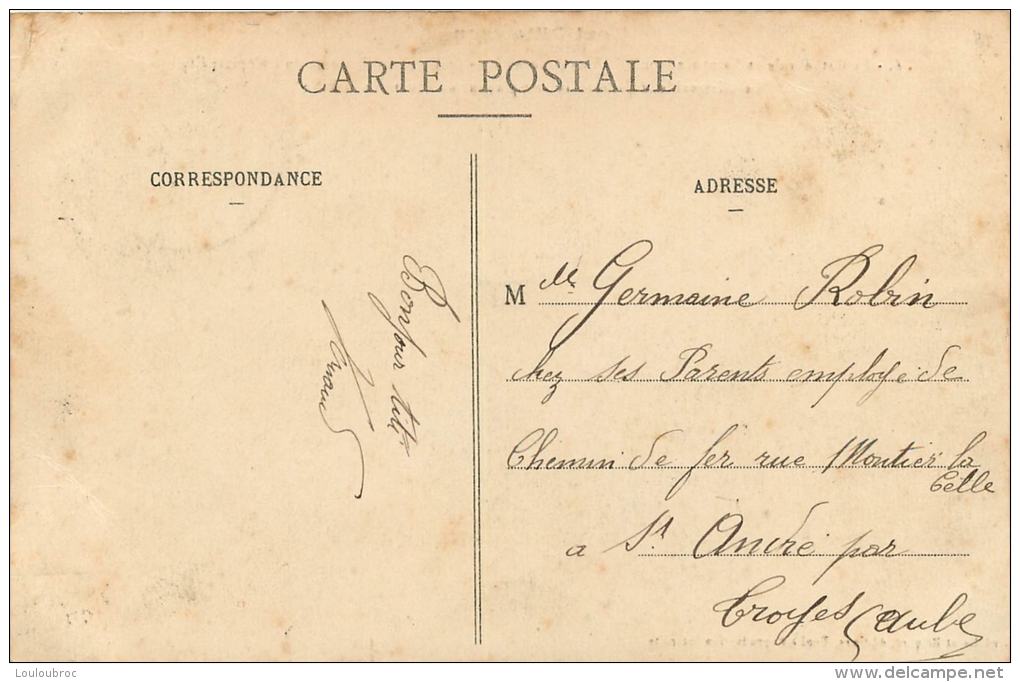 CARTE POSTALE
CORRESPONDANCE
Bonjour titi
ADRESSE
Mlle Germaine Robin
chez ses Parents employé de
Chemin de fer rue Moutier la
Celle
a St André par
Troyes (aube
Louloubroc
www.delcampe.net